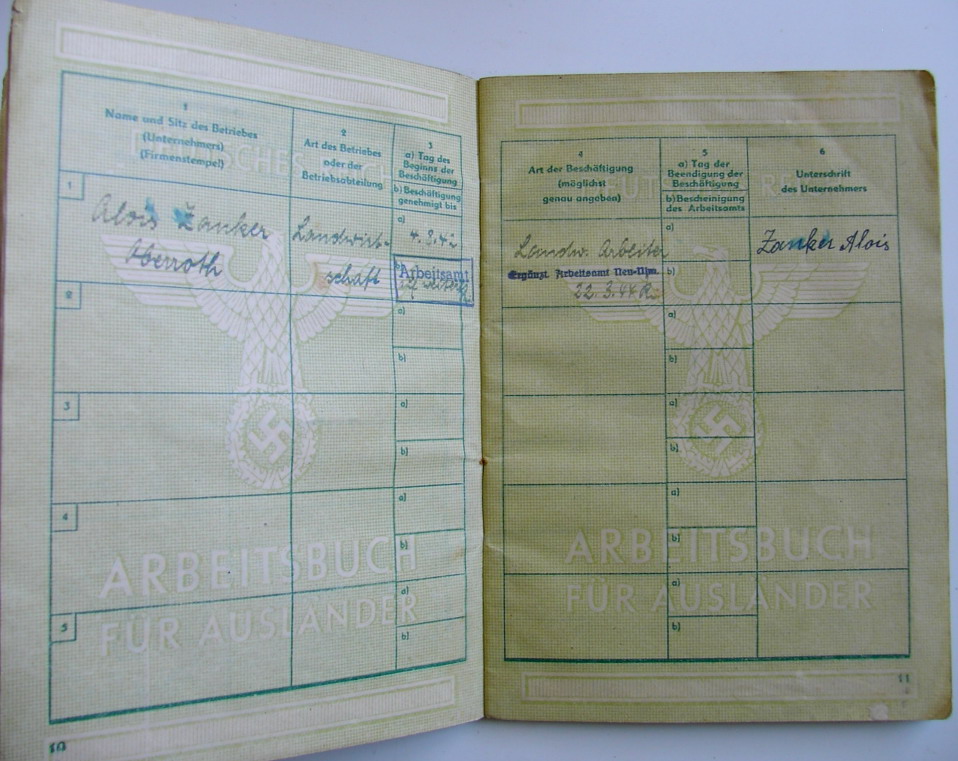 DEUTSCHES REICH
1
Name und Sitz des Betriebes
(Unternehmers)
(Firmenstempel)
2
Art des Betriebes
oder der
Betriebsabteilung
3
a) Tag des
Beginns der
Beschäftigung
b) Beschäftigung
genehmigt bis
1
Alois Zanker
Oberroth
Landwirt-
schaft
a)
4.3.42
b)
Arbeitsamt
2
a)
b)
3
a)
b)
4
a)
b)
5
a)
b)
ARBEITSBUCH
FÜR AUSLÄNDER
10
DEUTSCHES REICH
4
Art der Beschäftigung
(möglichst
genau angeben)
5
a) Tag der
Beendigung der
Beschäftigung
b) Bescheinigung
des Arbeitsamts
6
Unterschrift
des Unternehmers
Landw. Arbeiter
Ergänzt. Arbeitsamt Neu-Ulm.
22.3.44
a)
b)
Zanker Alois
a)
b)
a)
b)
a)
b)
a)
b)
ARBEITSBUCH
FÜR AUSLÄNDER
11